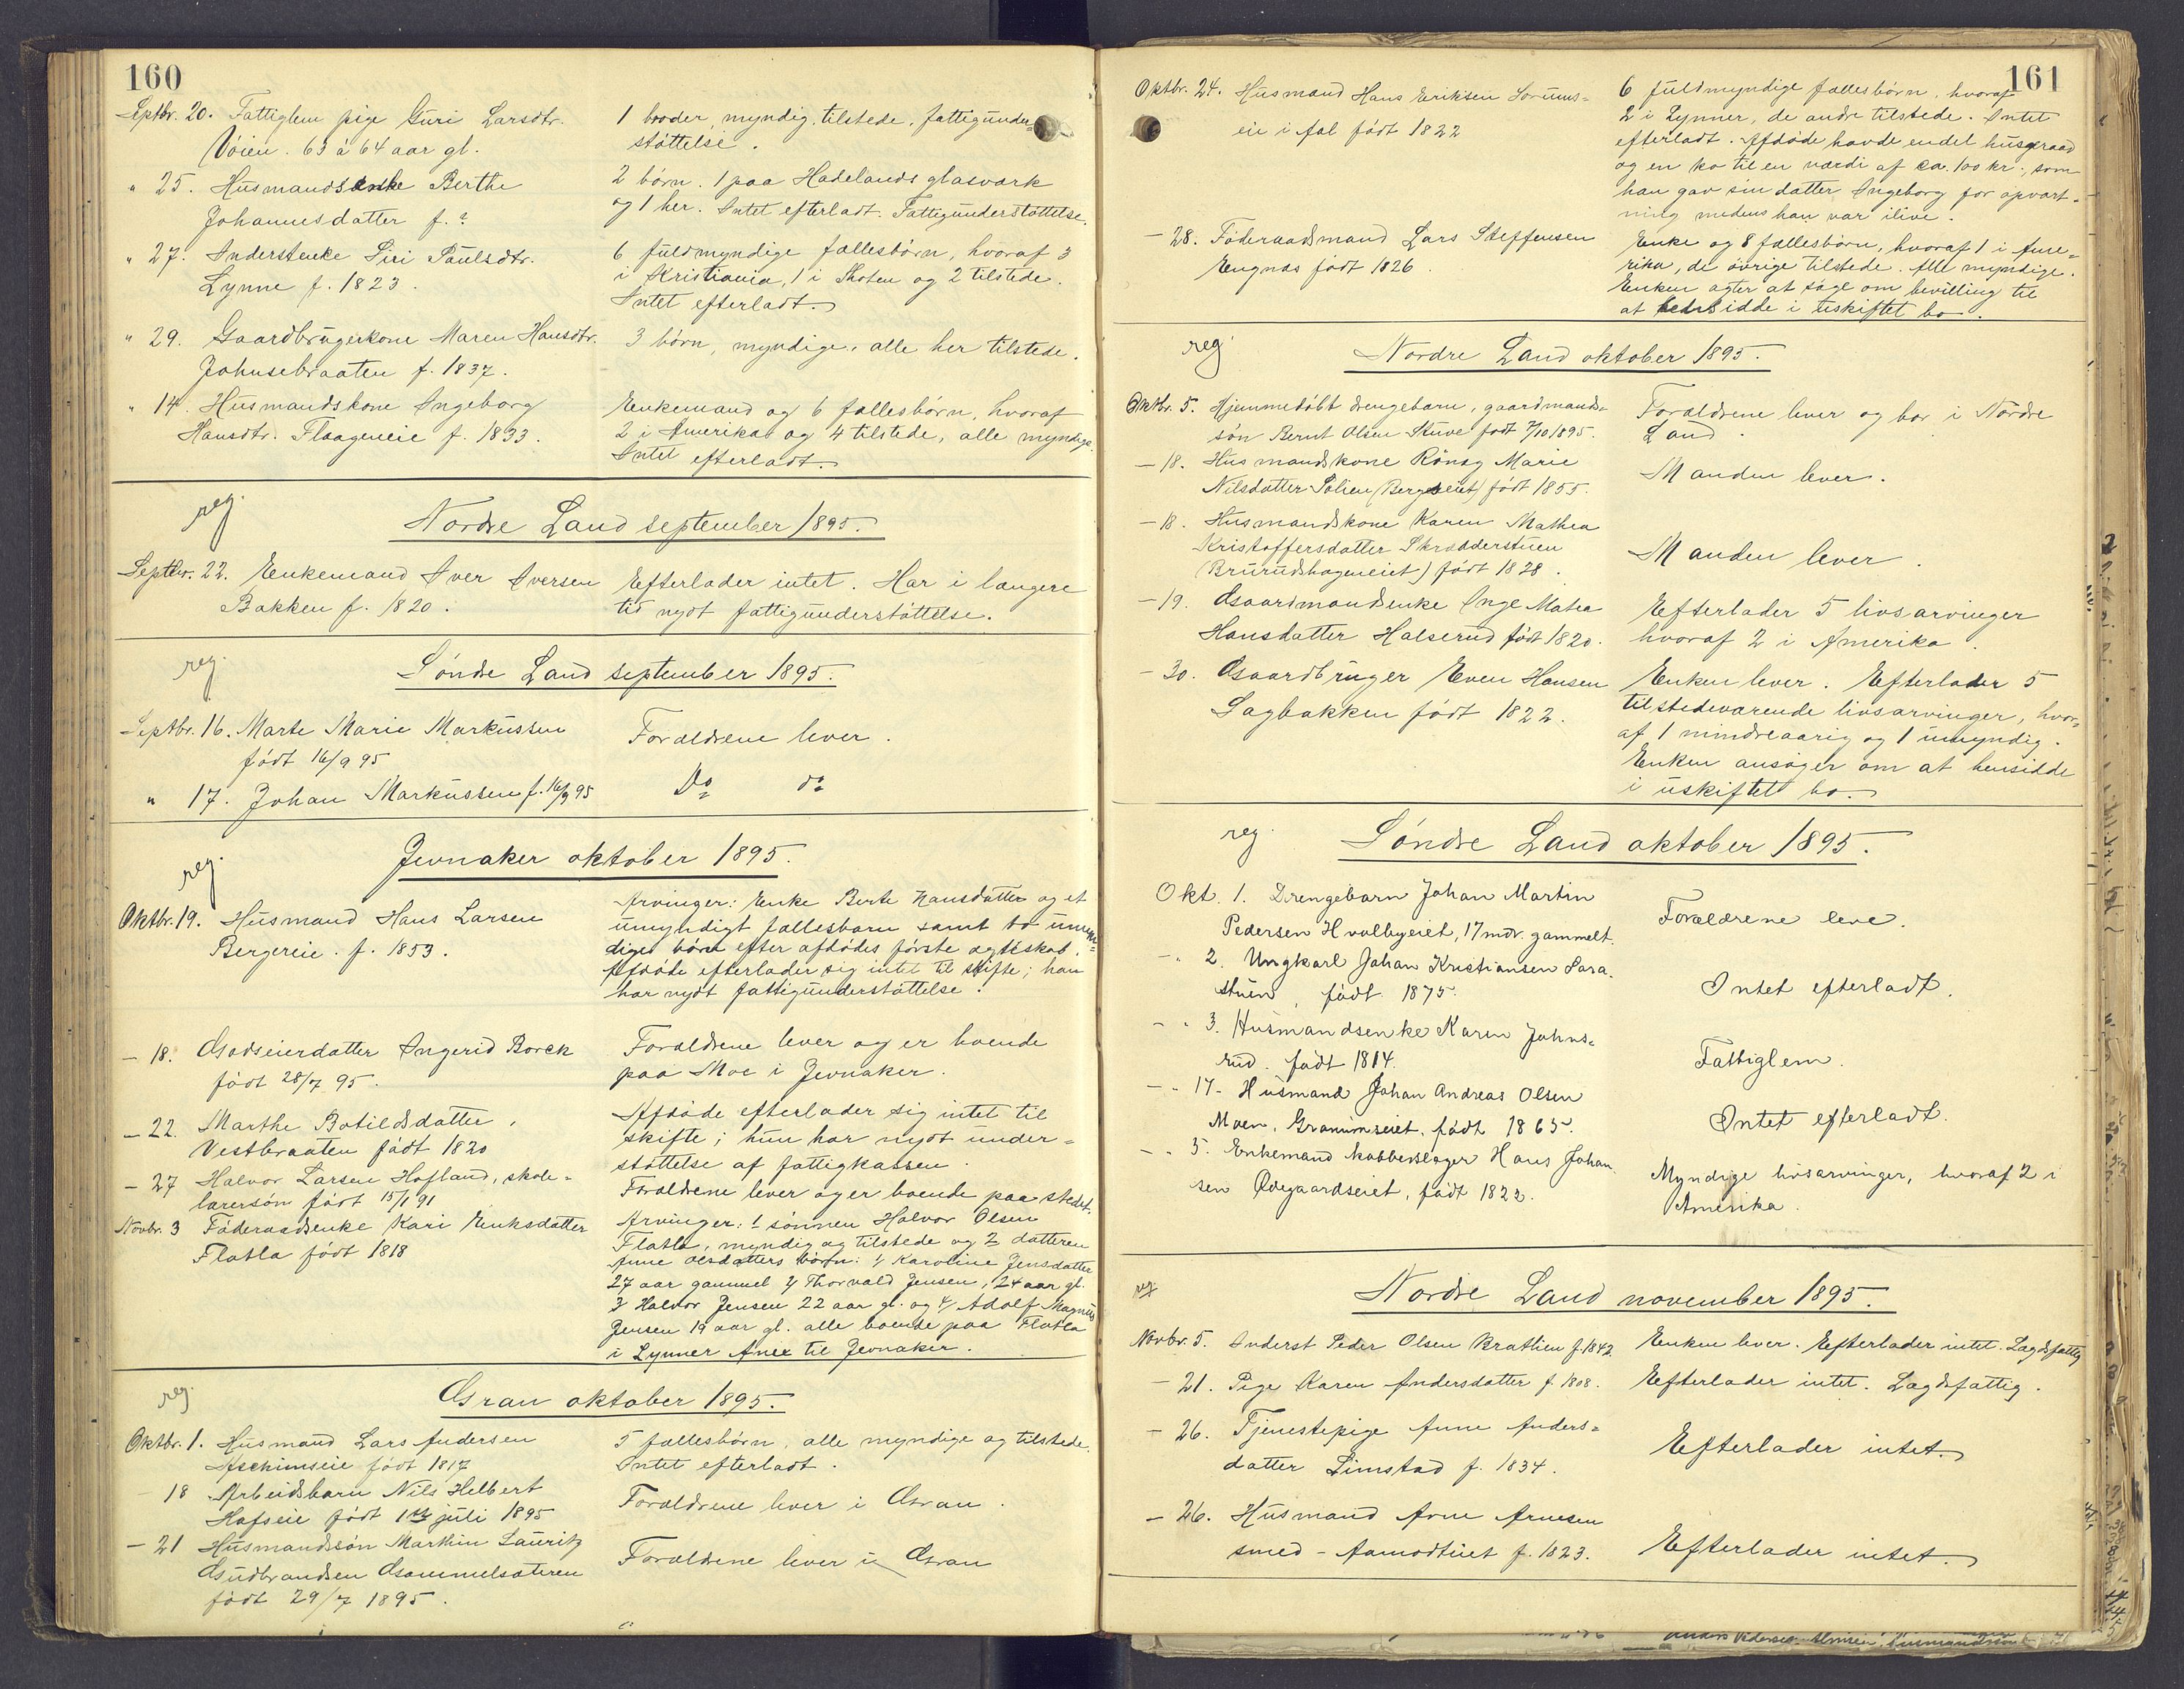 160
Septbr. 20. Fattiglem pige Guri Larsdtr.
Vöien. 63 à 64 aar gl.
1 broder, myndig, tilstede, fattigunder-
støttelse.
" 25. Husmandsenke Berthe
Johannesdatter f. ?
2 börn. 1 paa Hadelands glasværk
og 1 her. Intet efterladt. Fattigunderstöttelse.
" 27. Inderstenke Siri Paulsdtr.
Lynne f. 1823.
6 fuldmyndige fællesbörn, hvoraf 3
i Kristiania, 1 i Thoten og 2 tilstede.
Intet efterladt.
" 29. Gaardbrugerkone Maren Hansdtr.
Johnsebraaten f. 1837.
3 börn, myndige, alle her tilstede.
" 14. Husmandskone Ingeborg
Hansdtr. Flaageneie f. 1833.
Enkemand og 6 fællesbörn, hvoraf
2 i Amerika og 4 tilstede, alle myndige.
Intet efterladt.
reg.
Nordre Land september 1895.
Septbr. 22. Enkemand Iver Iversen
Bakken f. 1820.
Efterlader intet. Har i længere
tid nydt fattigunderstöttelse.
reg.
Söndre Land september 1895.
Septbr. 16. Marte Marie Markussen
födt 16/9 95
Forældrene lever.
" 17. Johan Markussen f. 16/9 95
Do do
reg.
Jevnaker oktober 1895.
Oktbr. 19. Husmand Hans Larsen
Bergereie. f. 1853.
Arvinger: Enke Berte Hansdatter og et
umyndigt fællesbarn samt to umyn-
dige börn efter afdödes förste ægteskab.
Afdöde efterlader sig intet til skifte; han
har nydt fattigunderstöttelse.
- 18. Godseierdatter Ingerid Borck
födt 28/7 95.
Forældrene lever og er boende
paa Moe i Jevnaker.
- 22. Marthe Botildsdatter,
Vestbraaten födt 1820
Afdöde efterlader sig intet til
skifte; hun har nydt under-
stöttelse af fattigkassen.
- 27 Halvor Larsen Hofland, skole-
lærersön födt 15/1 91
Forældrene lever og er boende paa stedet.
Novbr. 3 Föderaadsenke Kari Eriksdatter
Flatla födt 1818
Arvinger: 1 sönnen Halvor Olsen
Flatla, myndig og tilstede og 2 datteren
Anne Olsdatters börn: 1/ Karoline Jensdatter
27 aar gammel 2/ Thorvald Jensen, 24 aar gl.
3/ Halvor Jensen 22 aar gl. og 4/ Adolf Magnus
Jensen 19 aar gl. alle boende paa Flatla
i Lynner Anex til Jevnaker.
reg.
Gran oktober 1895.
Oktbr. 1. Husmand Lars Andersen
Aschimseie födt 1817
5 fællesbörn, alle myndige og tilstede.
Intet efterladt.
18 Arbeidsbarn Nils Helbert
Hofseie födt 1ste juli 1895
Forældrene lever i Gran.
- 21 Husmandssön Marthin Lauritz
Gudbrandsen Gammelsæteren
födt 29/7 1895.
Forældrene lever i Gran
161
Oktbr. 24. Husmand Hans Eriksen Sorums-
eie i Aal födt 1822
6 fuldmyndige fællesbörn, hvoraf
2 i Lynner, de andre tilstede. Intet
efterladt. Afdöde havde endel husgeraad
og en ko til en værdi af ca. 100 kr., som
han gav sin datter Ingeborg for opvart-
ning medens han var ilive.
- 28. Föderaadsmand Lars Steffensen
Engnæs födt 1826.
Enke og 8 fællesbörn, hvoraf 1 i Ame-
rika, de övrige tilstede. Alle myndige.
Enken agter at söge om bevilling til
at hensidde i uskiftet bo.
reg.
Nordre Land oktober 1895.
Oktbr. 5. Hjemmedöbt drengebarn, gaardmands-
sön Bernt Olsen Skuve födt 7/10 1895.
Forældrene lever og bor i Nordre
Land.
- 18. Husmandskone Rönog Marie
Nilsdatter Solien (Bergseiet) födt 1855.
Manden lever.
- 18. Husmandskone Karen Mathea
Kristoffersdatter Skrædderstuen
(Brurudshageneiet) födt 1828.
Manden lever.
- 19. Gaardmandsenke Inge Matea
Hansdatter Halserud födt 1820.
Efterlader 5 livsarvinger
hvoraf 2 i Amerika.
- 30. Gaardbruger Even Hansen
Sagbakken födt 1822.
Enken lever. Efterlader 5
tilstedeværende livsarvinger, hvor-
af 1 mindreaarig og 1 umyndig.
Enken ansöger om at hensidde
i uskiftet bo.
reg.
Söndre Land oktober 1895.
Okt. 1. Drengebarn Johan Martin
Pedersen Hvalbyeiet, 17 mdr. gammelt.
Forældrene leve.
- " 2. Ungkarl Johan Kristiansen Sara-
stuen, födt 1875.
Intet efterladt.
- " 3. Husmandsenke Karen Johns-
rud. födt 1814.
Fattiglem.
- " 17. Husmand Johan Andreas Olsen
Moen, Granumseiet, födt 1865.
Intet efterladt.
- " 5. Enkemand kobberslager Hans Johan-
sen Ødegaardseiet, födt 1822.
Myndige livsarvinger, hvoraf 2 i
Amerika.
reg.
Nordre Land november 1895.
Novbr. 5. Inderst Peder Olsen Bratlien f. 1842.
Enken lever. Efterlader intet. Lægdsfattig
- 21. Pige Karen Andersdatter f. 1808.
Efterlader intet. Lægdsfattig.
- 26. Tjenestepige Anne Anders-
datter Limstad f. 1834.
Efterlader intet.
- 26. Husmand Arne Arnesen
smed - Aamodteiet f. 1823.
Efterlader intet.